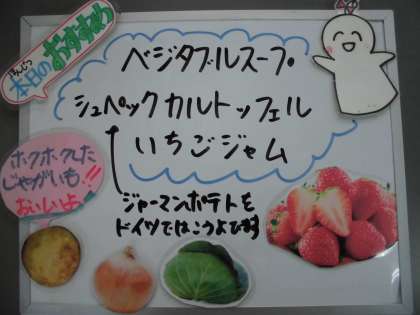 ほんじつ
本日の
おすすめ
ベジタブルスープ
シュペックカルトッフェル
いちごジャム
ホクホクした
じゃがいも!!
おいしいよ
ジャーマンポテトを
ドイツではこうよびます